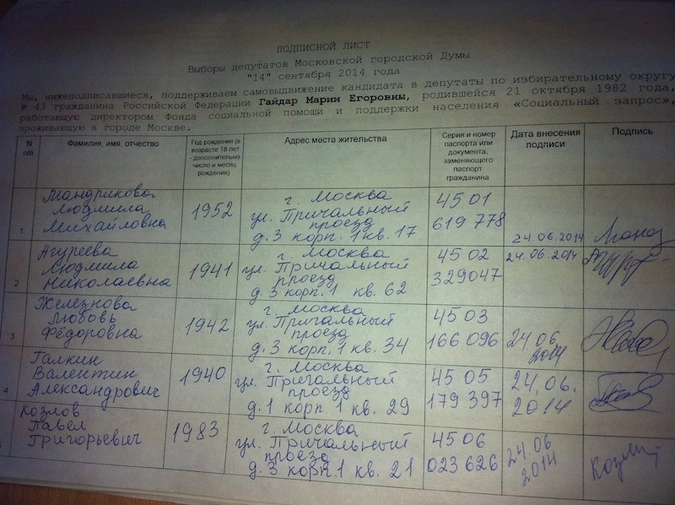 ПОДПИСНОЙ ЛИСТ
Выборы депутатов Московской городской Думы
"14" сентября 2014 года
Мы, нижеподписавшиеся, поддерживаем самовыдвижение кандидата в депутаты по избирательному округу
№ 43 гражданина Российской Федерации Гайдар Марии Егоровны, родившейся 21 октября 1982 года,
работающую директором Фонда социальной помощи и поддержки населения «Социальный запрос»,
проживающую в городе Москве.
N п/п
Фамилия, имя, отчество
Год рождения (в возрасте 18 лет - дополнительно число и месяц рождения)
Адрес места жительства
Серия и номер паспорта или документа, заменяющего паспорт гражданина
Дата внесения подписи
Подпись
1
Мандрикова
Людмила
Михайловна
1952
г. Москва
ул. Причальный
проезд
д. 3 корп. 1 кв. 17
45 01
619 778
24.06.2014
2
Агуреева
Людмила
Николаевна
1941
г. Москва
ул. Причальный
проезд
д. 3 корп. 1 кв. 62
45 02
329047
24.06.2014
3
Железнова
Любовь
Фёдоровна
1942
г. Москва
ул. Причальный
проезд
д. 3 корп. 1 кв. 34
45 03
166 096
24.06
2014
4
Галкин
Валентин
Александрович
1940
г. Москва
ул. Причальный
проезд
д. 1 корп. 1 кв. 29
45 05
179 397
24.06.
2014
Козлов
Павел
Григорьевич
1983
г. Москва
ул. Причальный
проезд
д. 3 корп. 1 кв. 21
45 06
023 626
24.06
2014